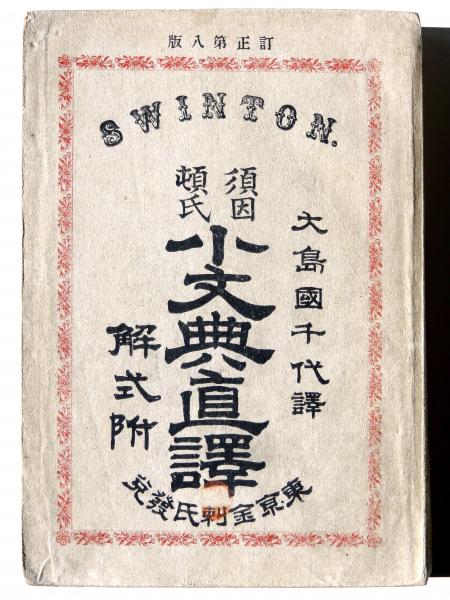 訂正第八版
SWINTON.
大島國千代譯
須因
頓氏
小文典直譯
解式附
東亰金刺氏發兌